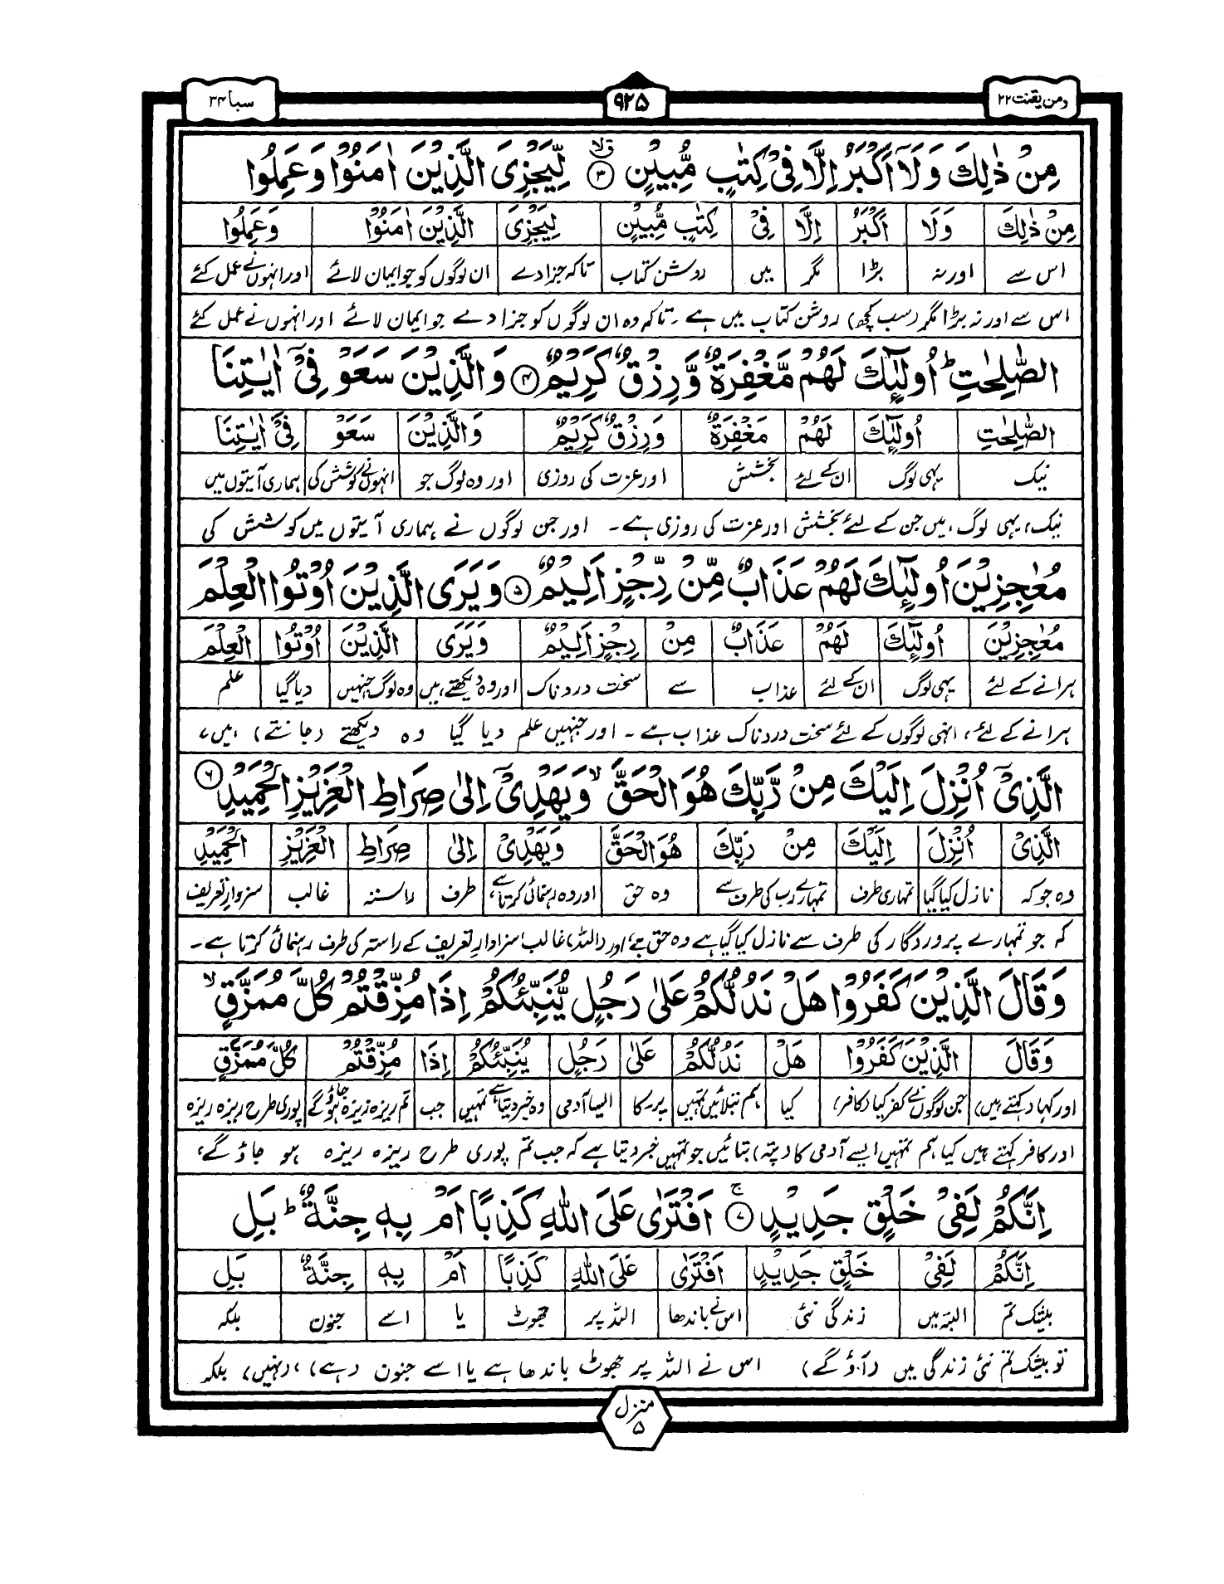 ومن یقنت ۲۲
۹۲۵
سبا ۳۴
مِنْ ذٰلِكَ وَلَاۤ اَكْبَرُ اِلَّا فِیْ كِتٰبٍ مُّبِیْنٍ ۙ﴿۳﴾ لِّیَجْزِیَ الَّذِیْنَ اٰمَنُوْا وَعَمِلُوا
مِنْ ذٰلِكَ وَلَا اَكْبَرُ اِلَّا فِیْ كِتٰبٍ مُّبِیْنٍ لِیَجْزِیَ الَّذِیْنَ اٰمَنُوْا وَعَمِلُوا
اس سے اور نہ بڑا مگر میں روشن کتاب تاکہ جزا دے ان لوگوں کو جو ایمان لائے اور انہوں نے عمل کئے
اس سے اور نہ بڑا مگر (سب کچھ) روشن کتاب میں ہے۔ تاکہ وہ ان لوگوں کو جزا دے جو ایمان لائے اور انہوں نے عمل کئے
الصّٰلِحٰتِ ؕ اُولٰٓئِكَ لَهُمْ مَّغْفِرَةٌ وَّرِزْقٌ كَرِیْمٌ ﴿۴﴾ وَالَّذِیْنَ سَعَوْ فِیْۤ اٰیٰتِنَا
الصّٰلِحٰتِ اُولٰٓئِكَ لَهُمْ مَغْفِرَةٌ وَرِزْقٌ كَرِیْمٌ وَالَّذِیْنَ سَعَوْ فِیْۤ اٰیٰتِنَا
نیک یہی لوگ ان کے لئے بخشش اور عزت کی روزی اور وہ لوگ جو انہوں نے کوشش کی ہماری آیتوں میں
نیک، یہی لوگ ہیں جن کے لئے بخشش اور عزت کی روزی ہے۔ اور جن لوگوں نے ہماری آیتوں میں کوشش کی
مُعٰجِزِیْنَ اُولٰٓئِكَ لَهُمْ عَذَابٌ مِّنْ رِّجْزٍ اَلِیْمٌ ﴿۵﴾ وَیَرَی الَّذِیْنَ اُوْتُوا الْعِلْمَ
مُعٰجِزِیْنَ اُولٰٓئِكَ لَهُمْ عَذَابٌ مِنْ رِجْزٍ اَلِیْمٌ وَیَرَی الَّذِیْنَ اُوْتُوا الْعِلْمَ
ہرانے کے لئے یہی لوگ ان کے لئے عذاب سے سخت دردناک اور وہ دیکھتے ہیں وہ لوگ جنہیں دیا گیا علم
ہرانے کے لئے، انہی لوگوں کے لئے سخت دردناک عذاب ہے۔ اور جنہیں علم دیا گیا وہ دیکھتے (جانتے) ہیں،
الَّذِیْۤ اُنْزِلَ اِلَیْكَ مِنْ رَّبِّكَ هُوَ الْحَقَّ ۙ وَیَهْدِیْۤ اِلٰی صِرَاطِ الْعَزِیْزِ الْحَمِیْدِ ﴿۶﴾
الَّذِیْۤ اُنْزِلَ اِلَیْكَ مِنْ رَبِّكَ هُوَ الْحَقَّ وَیَهْدِیْۤ اِلٰی صِرَاطِ الْعَزِیْزِ الْحَمِیْدِ
وہ جو کہ نازل کیا گیا تمہاری طرف تمہارے رب کی طرف سے وہ حق اور وہ رہنمائی کرتا ہے طرف راستہ غالب سزاوارِ تعریف
کہ جو تمہارے پروردگار کی طرف سے نازل کیا گیا ہے وہ حق ہے، اور (اللہ) غالب سزاوارِ تعریف کے راستہ کی طرف رہنمائی کرتا ہے۔
وَقَالَ الَّذِیْنَ كَفَرُوْا هَلْ نَدُلُّكُمْ عَلٰی رَجُلٍ یُّنَبِّئُكُمْ اِذَا مُزِّقْتُمْ كُلَّ مُمَزَّقٍ ۙ
وَقَالَ الَّذِیْنَ كَفَرُوْا هَلْ نَدُلُّكُمْ عَلٰی رَجُلٍ یُنَبِّئُكُمْ اِذَا مُزِّقْتُمْ كُلَّ مُمَزَّقٍ
اور کہا (کہتے ہیں) جن لوگوں نے کفر کیا (کافر) کیا ہم بتلائیں تمہیں پر۔کا ایسا آدمی وہ خبر دیتا ہے تمہیں جب تم ریزہ ریزہ ہو جاؤ گے پوری طرح ریزہ ریزہ
اور کافر کہتے ہیں کیا ہم تمہیں ایسے آدمی کا (پتہ) بتائیں جو تمہیں خبر دیتا ہے کہ جب تم پوری طرح ریزہ ریزہ ہو جاؤ گے،
اِنَّكُمْ لَفِیْ خَلْقٍ جَدِیْدٍ ۚ﴿۷﴾ اَفْتَرٰی عَلَی اللّٰهِ كَذِبًا اَمْ بِهٖ جِنَّةٌ ؕ بَلِ
اِنَّكُمْ لَفِیْ خَلْقٍ جَدِیْدٍ اَفْتَرٰی عَلَی اللّٰهِ كَذِبًا اَمْ بِهٖ جِنَّةٌ بَلِ
بیشک تم البتہ میں زندگی نئی اس نے باندھا اللہ پر جھوٹ یا اسے جنون بلکہ
تو بیشک تم نئی زندگی میں (آؤ گے) اس نے اللہ پر جھوٹ باندھا ہے یا اسے جنون (ہے)، (نہیں) بلکہ
منزل ۵